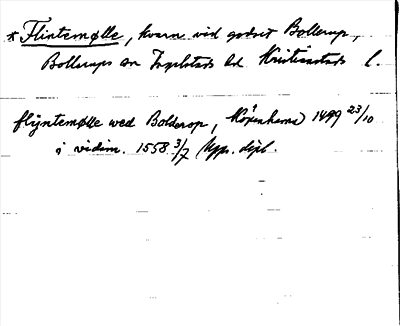 * Flintemølle, kvarn vid godset Bollerup,
Bollerups sn Ingelstads hd Kristianstads l.
flÿntemølle wed Bolderop, Köpenhamn 1499 23/10
i vidim. 1558 3/7 Upps. dipl.